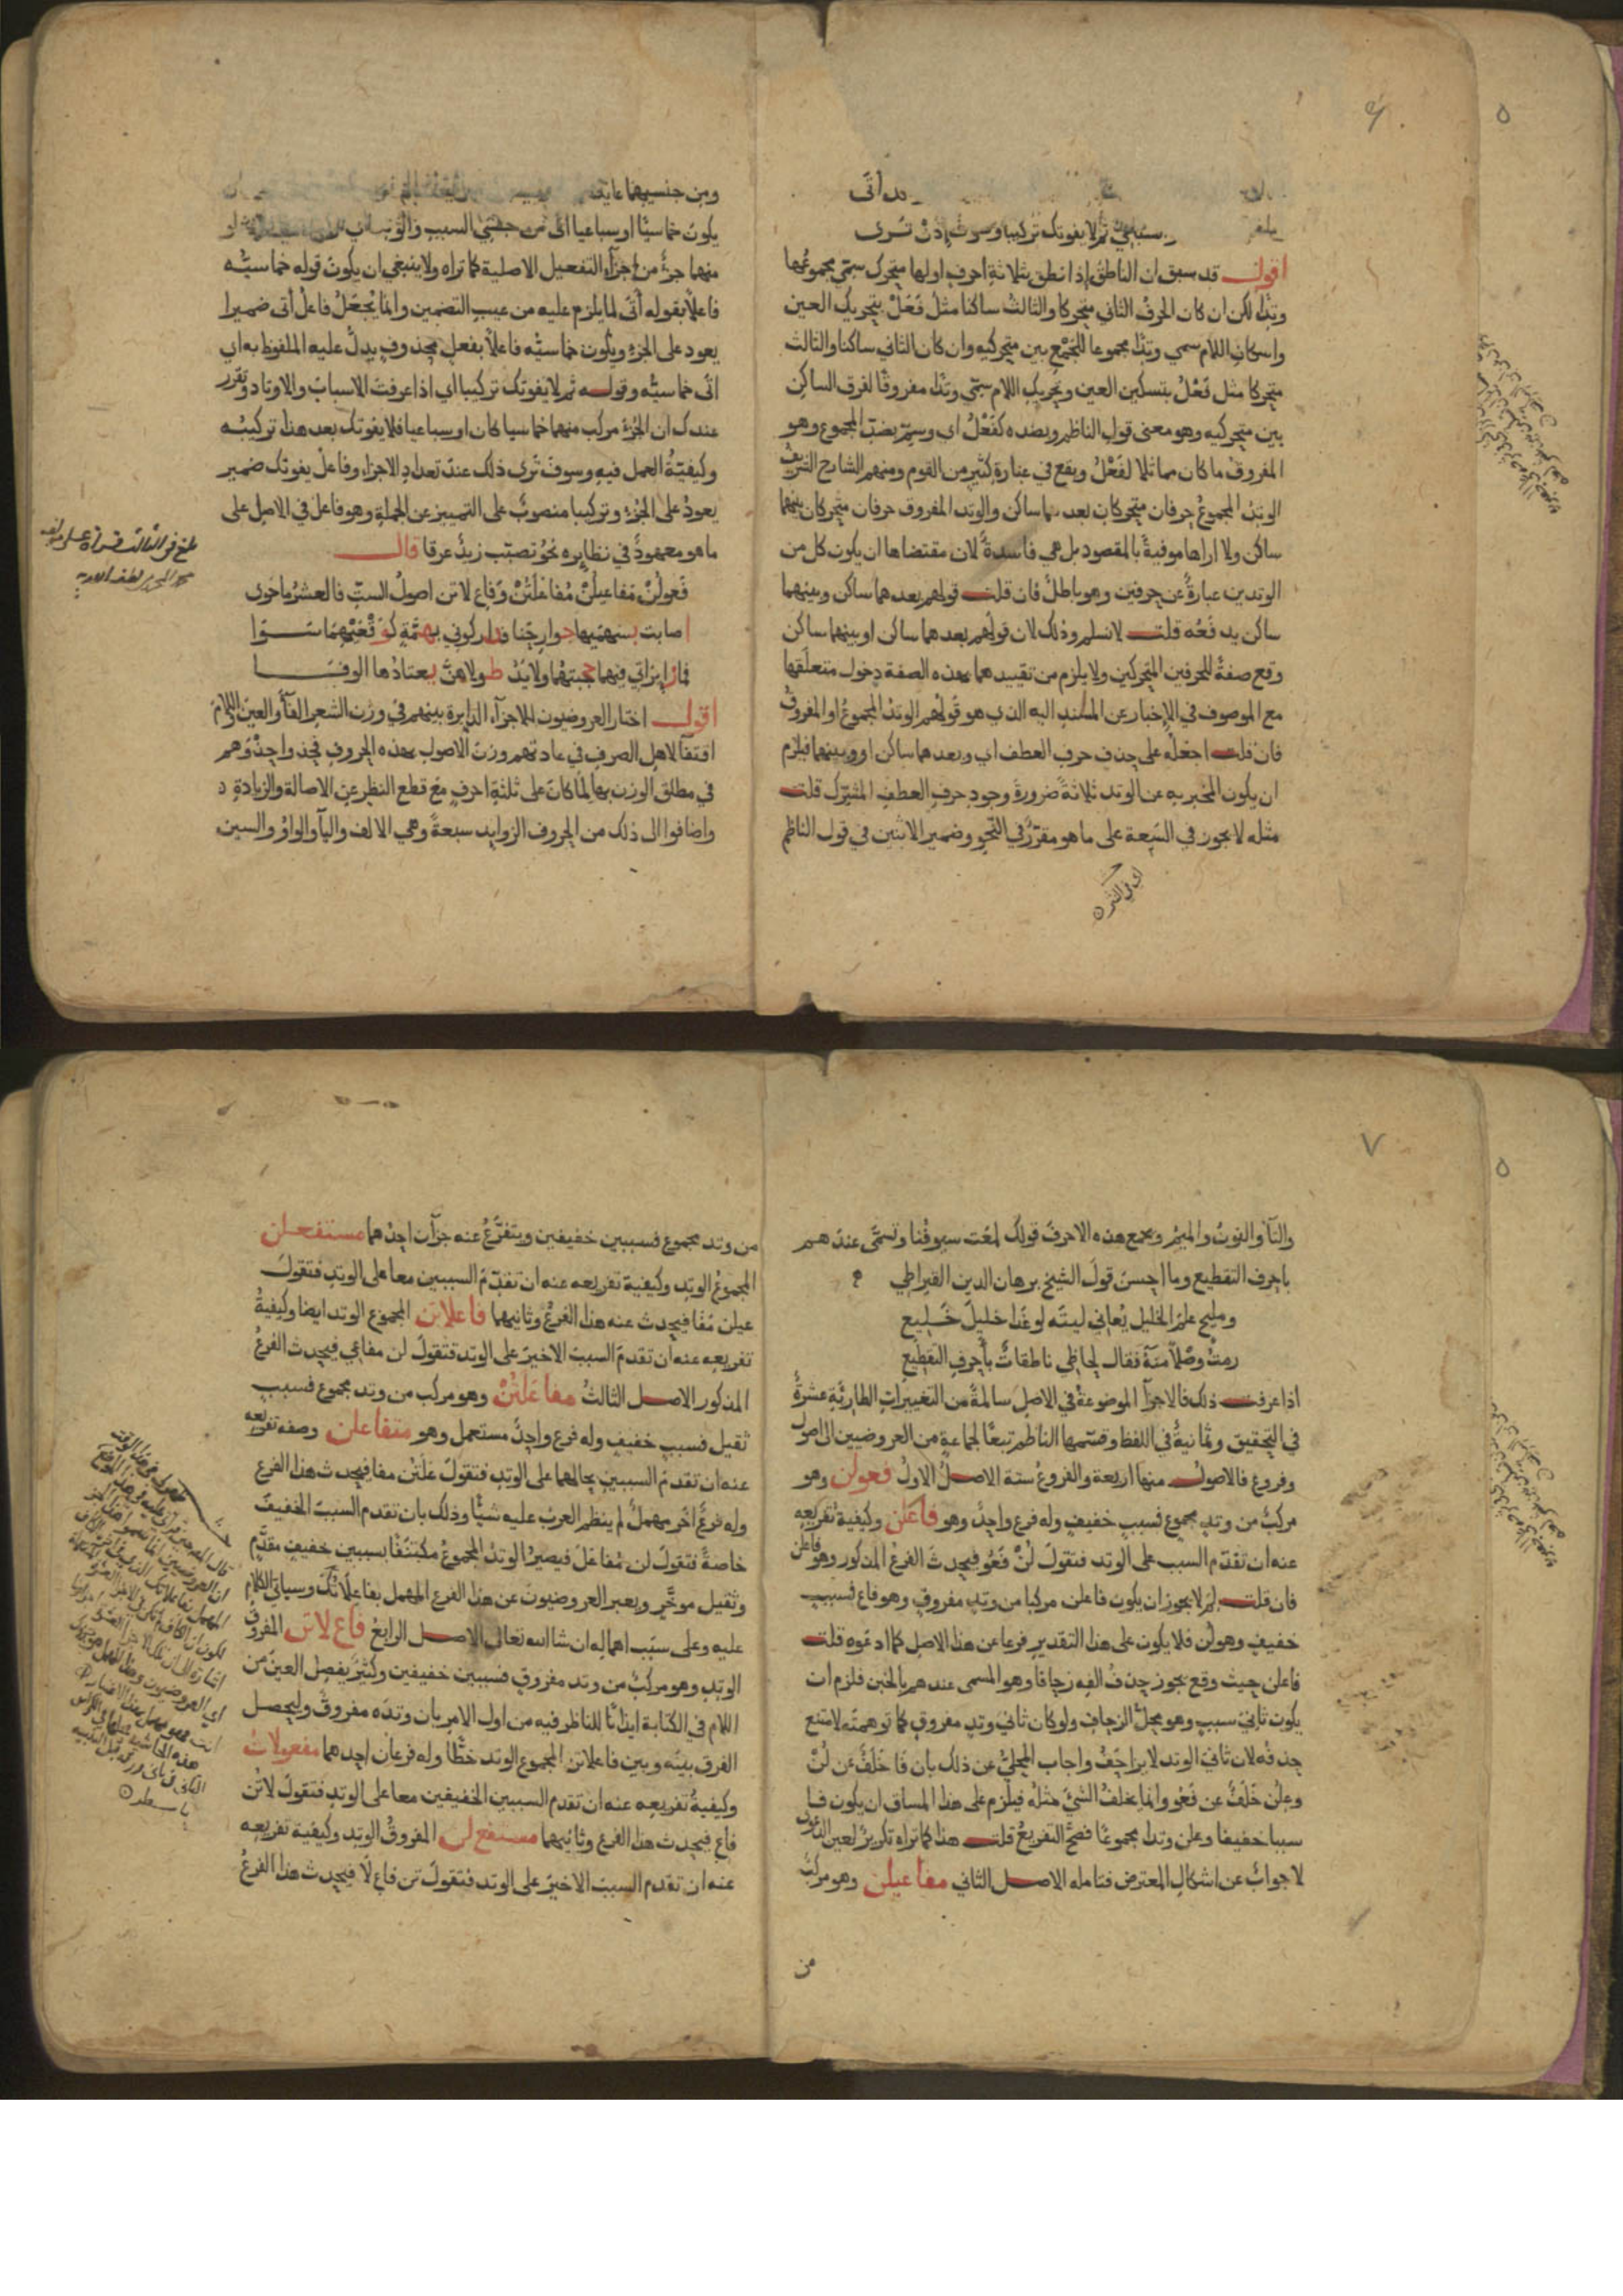 دن أتى
ثم لا يفوتك تركيبا وسوف إذن ترى
اقول قد سبق ان الناطق إذا نطق بثلاثة احرف اولها متحرك سمى مجموعها
وتدا لكن ان كان الحرف الثاني متحركا والثالث ساكنا مثل فَعَلْ بتحريك العين
واسكان اللام سمي وتدا مجموعا للجمع بين متحركيه وان كان الثاني ساكنا والثالث
متحركا مثل فَعْلُ بتسكين العين وتحريك اللام سمى وتدا مفروقا لفرق الساكن
بين متحركيه وهو معنى قول الناظم وبضده كفَعْلُ اي وسم بضد المجموع وهو
المفروق ما كان مماثلا لفَعْلُ ويقع في عبارة كثير من القوم ومنهم الشارح الشريف
الوتد المجموع حرفان متحركان بعدهما ساكن والوتد المفروق حرفان متحركان بينهما
ساكن ولا اراها موفية بالمقصود بل هي فاسدة لان مقتضاها ان يكون كل من
الوتدين عبارة عن حرفين وهو باطل فان قلت قولهم بعدهما ساكن وبينهما
ساكن يدفعه قلت لا نسلم وذلك لان قولهم بعدهما ساكن او بينهما ساكن
وقع صفة للحرفين المتحركين ولا يلزم من تقييدهما بهذه الصفة دخول متعلقها
مع الموصوف في الاخبار عن المسند اليه الذي هو قولهم الوتد المجموع او المفروق
فان قلت اجعله على حذف حرف العطف اي وبعدهما ساكن او وبينهما فيلزم
ان يكون المخبر به عن الوتد ثلاثة ضرورة وجود حرف العطف المشرك قلت
مثله لا يجوز في السعة على ما هو مقرر في النحو وضمير الاثنين في قول الناظم
اي في النثر
ومن جنسيهما
يكون خماسيا او سباعيا اي من جنسي السبب والوتد
منها جزء من اجزاء التفعيل الاصلية كما تراه ولا ينبغي ان يكون قوله خماسيه
فاعلا بقوله أتى لما يلزم عليه من عيب التضمين وانما يجعل فاعل أتى ضميرا
يعود على الجزء ويكون خماسيه فاعلا بفعل محذوف يدل عليه الملفوظ به اي
اتى خماسيه وقوله ثم لا يفوتك تركيبا اي اذا عرفت الاسباب والاوتاد وتقرر
عندك ان الجزء مركب منهما خماسيا كان او سباعيا فلا يفوتك بعد هذا تركيبه
وكيفية العمل فيه وسوف ترى ذلك عند تعداد الاجزاء وفاعل يفوتك ضمير
يعود على الجزء وتركيبا منصوب على التمييز عن الجملة وهو فاعل في الاصل على
ما هو معهود في نظايره نحو تصبب زيد عرقا قال
فَعولُن مَفاعيلُن مُفاعَلَتُنْ وَفاعِ لاتن اصولُ الست فالعشر ما حوى
اصابت بسهميها جوارحنا فداركوني بهمة كوقعيهما سوا
فما زايراتي فيهما حجبتهما ولا يد طولاهن يعتادها الوفا
اقول اختار العروضيون للاجزاء الدايرة بينهم في وزن الشعر الفاء والعين واللام
اقتفاء لاهل الصرف في عادتهم وزن الاصول بهذه الحروف فحذوا حذوهم
في مطلق الوزن بها لما كان على ثلثة احرف مع قطع النظر عن الاصالة والزيادة
واضافوا الى ذلك من الحروف الزوايد سبعة وهي الالف واليا والواو والسين
والتا والنون والميم ويجمع هذه الاحرف قولك لمعت سيوفنا وتسمى عندهم
باحرف التقطيع وما احسن قول الشيخ برهان الدين القيراطي
ومليح علم الخليل يعاني ليته لو غدا خليلَ خَليع
رمتُ وصلاً منه فقال لحاظي ناطقاتٌ بأحرف التقطيع
اذا عرفت ذلك فالاجزا الموضوعة في الاصل سالمة من التغييرات الطارئة عشرة
في التحقيق وثمانية في اللفظ وقسمها الناظم تبعا لجماعة من العروضيين الى اصول
وفروع فالاصول منها اربعة والفروع ستة الاصل الاول فعولن وهو
مركب من وتد مجموع فسبب خفيف وله فرع واحد وهو فاعلن وكيفية تفريعه
عنه ان تقدم السبب على الوتد فتقول لُنْ فَعُو فيحدث الفرع المذكور وهو فاعلن
فان قلت لم لا يجوز ان يكون فاعلن مركبا من وتد مفروق وهو فاع فسبب
خفيف وهو لن فلا يكون على هذا التقدير فرعا عن هذا الاصل كما ادعوه قلت
فاعلن حيث وقع يجوز حذف الفه زحافا وهو المسمى عندهم بالخبن فلزم ان
يكون ثاني سبب وهو محل الزحاف ولو كان ثاني وتد مفروق كما توهمته لامتنع
حذفه لان ثاني الوتد لا يزاحف واجاب المحلي عن ذلك بان فا خَلَف عن لُنْ
وعلن خَلَف عن فَعُو وانما يخلف الشيء مثله فيلزم على هذا المساق ان يكون فا
سببا خفيفا وعلن وتدا مجموعا فصح التفريع قلت هذا كما تراه تكرير لعين الدعوى
لا جواب عن اشكال المعترض فتامله الاصل الثاني مفاعيلن وهو مركب
من
من وتد مجموع فسببين خفيفين ويتفرع عنه جزآن احدهما مستفعلن
المجموع الوتد وكيفية تفريعه عنه ان تقدم السببين معا على الوتد فتقول
عيلن مُفا فيحدث عنه هذا الفرع وثانيهما فاعلاتن المجموع الوتد ايضا وكيفية
تفريعه عنه ان تقدم السبب الاخير على الوتد فتقول لن مفاعي فيحدث الفرع
المذكور الاصل الثالث مفاعَلَتُنْ وهو مركب من وتد مجموع فسبب
ثقيل فسبب خفيف وله فرع واحد مستعمل وهو متفاعلن وصفة تفريعه
عنه ان تقدم السببين بحالهما على الوتد فتقول عَلَتُنْ مفا فيحدث هذا الفرع
وله فرع آخر مهمل لم ينظم العرب عليه شيئا وذلك بان تقدم السبب الخفيف
خاصة فتقول لن مُفاعَلَ فيصير الوتد المجموع مكتنفا بسببين خفيف مقدم
وثقيل موخر ويعبر العروضيون عن هذا الفرع المهمل بفاعلاتك وسياتي الكلام
عليه وعلى سبب اهماله ان شا الله تعالى الاصل الرابع فاع لاتن المفروق
الوتد وهو مركب من وتد مفروق فسببين خفيفين وكثير يفصل العين من
اللام في الكتابة ايذانا للناظر فيه من اول الامر بان وتده مفروق وليحصل
الفرق بينه وبين فاعلاتن المجموع الوتد خطا وله فرعان احدهما مفعولات
وكيفية تفريعه عنه ان تقدم السببين الخفيفين معا على الوتد فتقول لاتن
فاع فيحدث هذا الفرع وثانيهما مستفع لن المفروق الوتد وكيفية تفريعه
عنه ان تقدم السبب الاخير على الوتد فتقول تن فاع لا فيحدث هذا الفرع